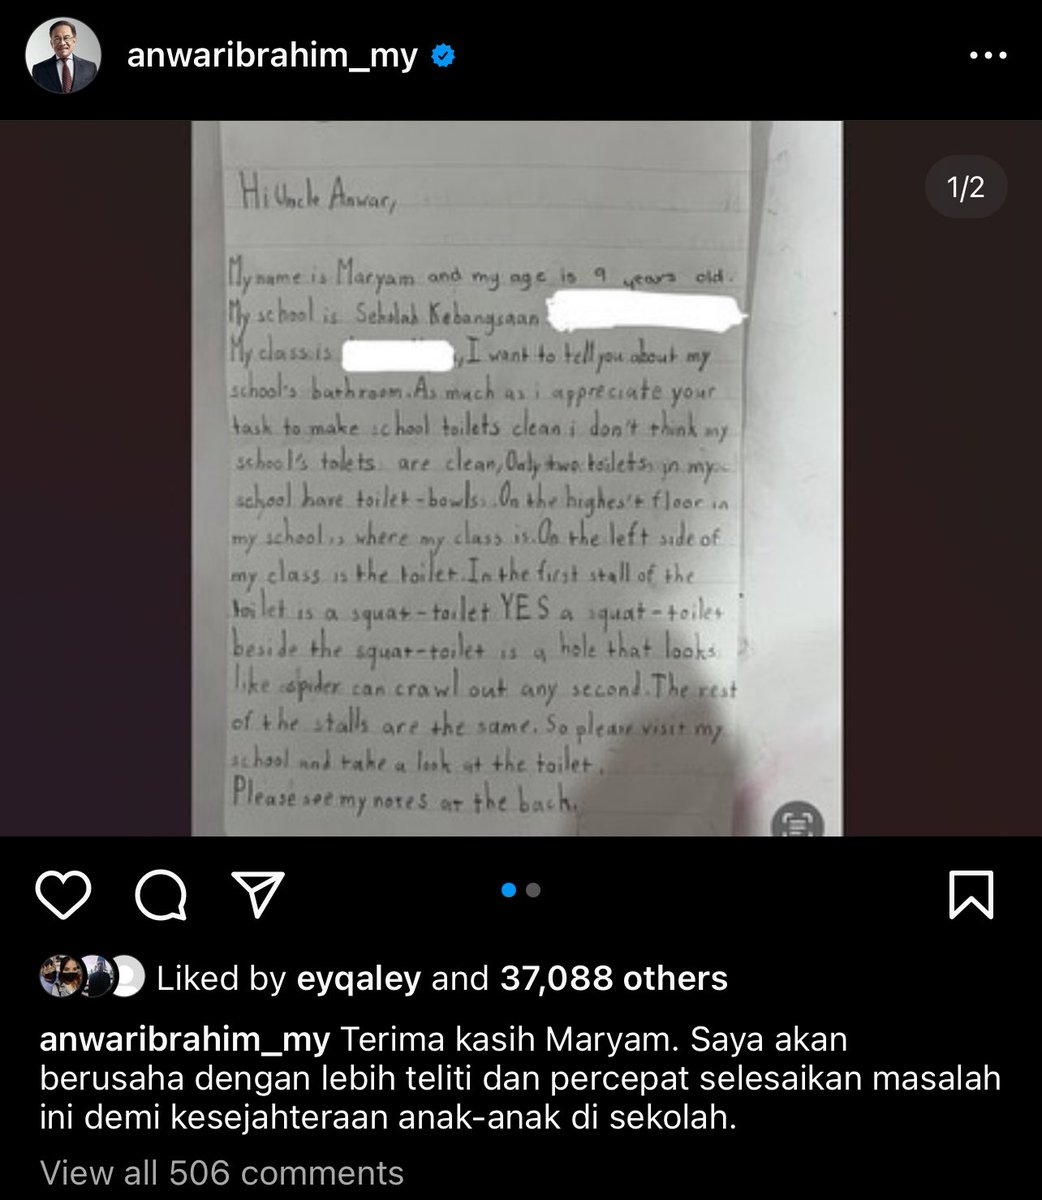 anwaribrahim_my
1/2
Hi Uncle Anwar,
My name is Maryam and my age is 9 years old.
My school is Sekolah Kebangsaan
My class is , I want to tell you about my
school's bathroom. As much as i appreciate your
task to make school toilets clean i don't think my
school's tolets are clean, Only two toilets in my
school have toilet-bowls. On the highes't floor in
my school is where my class is. On the left side of
my class is the toilet. In the first stall of the
toilet is a squat-toilet YES a squat-toilet
beside the squat-toilet is a hole that looks
like spider can crawl out any second. The rest
of the stalls are the same. So please visit my
school and take a look at the toilet.
Please see my notes at the back.
Liked by eyqaley and 37,088 others
anwaribrahim_my Terima kasih Maryam. Saya akan
berusaha dengan lebih teliti dan percepat selesaikan masalah
ini demi kesejahteraan anak-anak di sekolah.
View all 506 comments